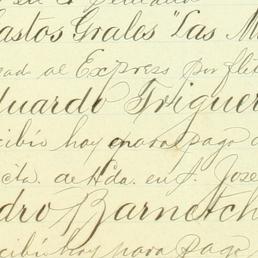 astos Grales "Las M
ad al Express por fle
duardo Triguer
cibió hoy para pago
cta. de Hda. en S. Jose
dro Barnetch
cibió hoy para pago